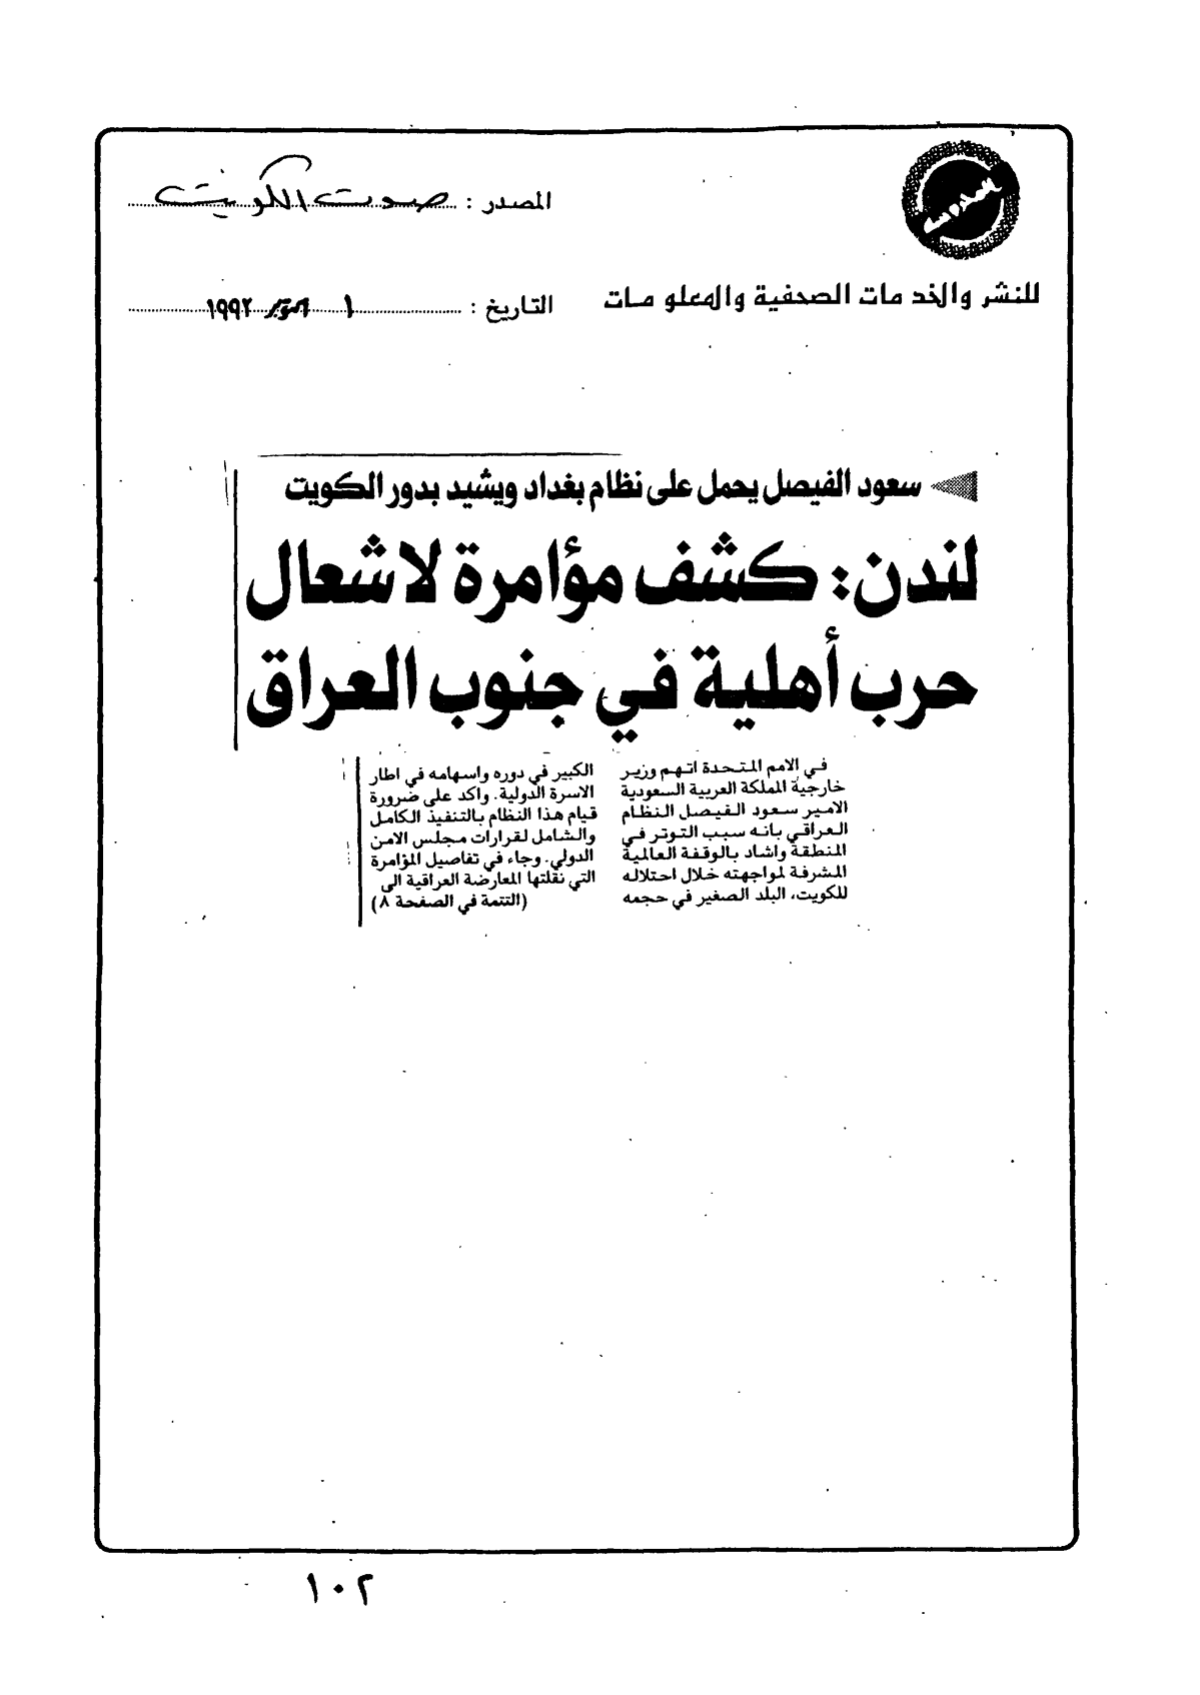 المصدر : صوت الكويت
للنشر والخدمات الصحفية والمعلومات
التاريخ : ١ اكتوبر ١٩٩٢
سعود الفيصل يحمل على نظام بغداد ويشيد بدور الكويت
لندن: كشف مؤامرة لاشعال
حرب أهلية في جنوب العراق
في الامم المتحدة اتهم وزير
خارجية المملكة العربية السعودية
الامير سعود الفيصل النظام
العراقي بانه سبب التوتر في
المنطقة واشاد بالوقفة العالمية
المشرفة لمواجهته خلال احتلاله
للكويت، البلد الصغير في حجمه
الكبير في دوره واسهامه في اطار
الاسرة الدولية. واكد على ضرورة
قيام هذا النظام بالتنفيذ الكامل
والشامل لقرارات مجلس الامن
الدولي. وجاء في تفاصيل المؤامرة
التي نقلتها المعارضة العراقية الى
(التتمة في الصفحة ٨)
١٠٢